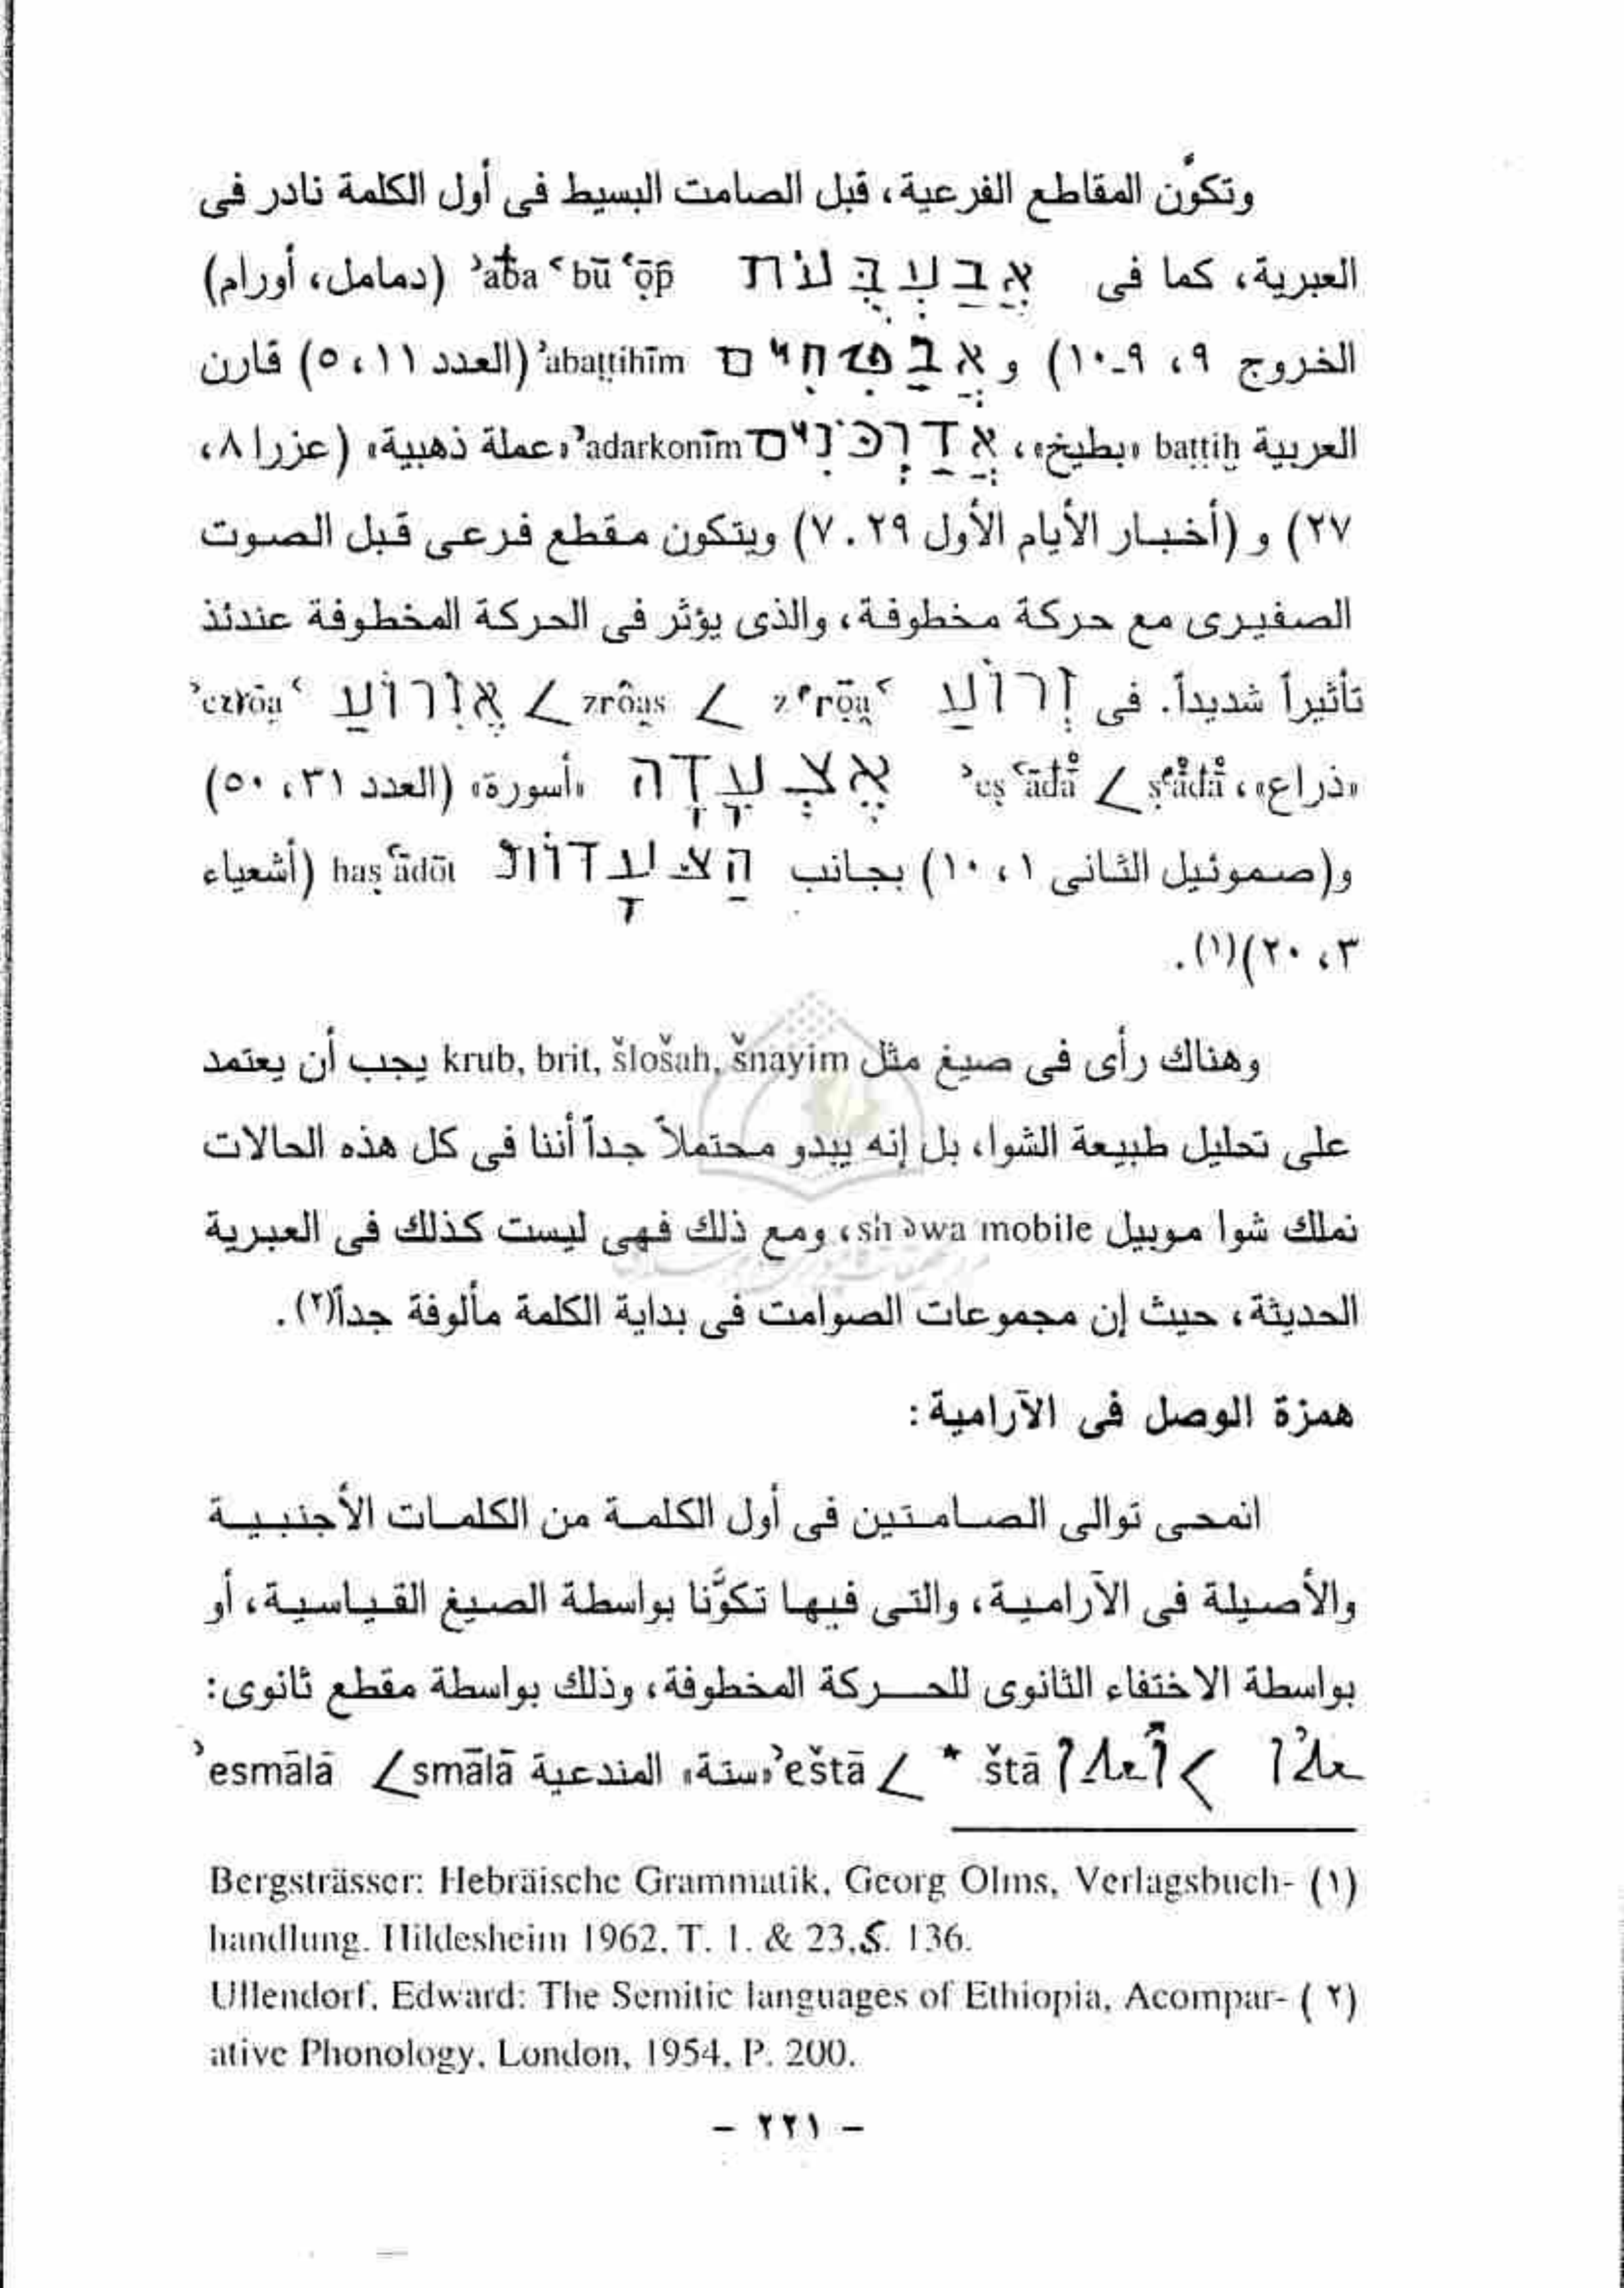 وتكوَّن المقاطع الفرعية، قبل الصامت البسيط فى أول الكلمة نادر فى
العبرية، كما فى אֲבַעְבֻּעֹת ʾaba ʿbū ʿōp (دمامل، أورام)
الخروج ٩، ٩-١٠) و אֲבַטִּחִים ʾabaṭṭihīm (العدد ١١، ٥) قارن
العربية baṭṭiḫ «بطيخ»، אֲדַרְכֹּנִים ʾadarkonīm «عملة ذهبية» (عزرا ٨،
٢٧) و (أخبار الأيام الأول ٢٩. ٧) ويتكون مقطع فرعى قبل الصوت
الصفيرى مع حركة مخطوفة، والذى يؤثر فى الحركة المخطوفة عندئذ
تأثيراً شديداً. فى זְרוֹעַ zᵉrōạʿ > zrôạs > אֶזְרוֹעַ ʾezrōạʿ
«ذراع»، ṣᵉʿådå > ʾeṣʿādå אֶצְעָדָה «أسورة» (العدد ٣١، ٥٠)
و(صموئيل الثانى ١، ١٠) بجانب הַצְּעָדוֹת haṣʿādōt (أشعياء
٣، ٢٠)(١).
وهناك رأى فى صيغ مثل krub, brit, šlošah, šnayim يجب أن يعتمد
على تحليل طبيعة الشوا، بل إنه يبدو محتملاً جداً أننا فى كل هذه الحالات
نملك شوا موبيل shəwa mobile، ومع ذلك فهى ليست كذلك فى العبرية
الحديثة، حيث إن مجموعات الصوامت فى بداية الكلمة مألوفة جداً(٢).
همزة الوصل فى الآرامية:
انمحى توالى الصامتين فى أول الكلمة من الكلمات الأجنبية
والأصيلة فى الآرامية، والتى فيها تكوَّنا بواسطة الصيغ القياسية، أو
بواسطة الاختفاء الثانوى للحركة المخطوفة، وذلك بواسطة مقطع ثانوى:
> * štā > ʾeštā «ستة» المندعية smālā > ʾesmālā
(١) Bergsträsser: Hebräische Grammatik, Georg Olms, Verlagsbuch-
handlung. Hildesheim 1962, T. 1. & 23,S. 136.
(٢) Ullendorf, Edward: The Semitic languages of Ethiopia, Acompar-
ative Phonology, London, 1954, P. 200.
- ٢٢١ -